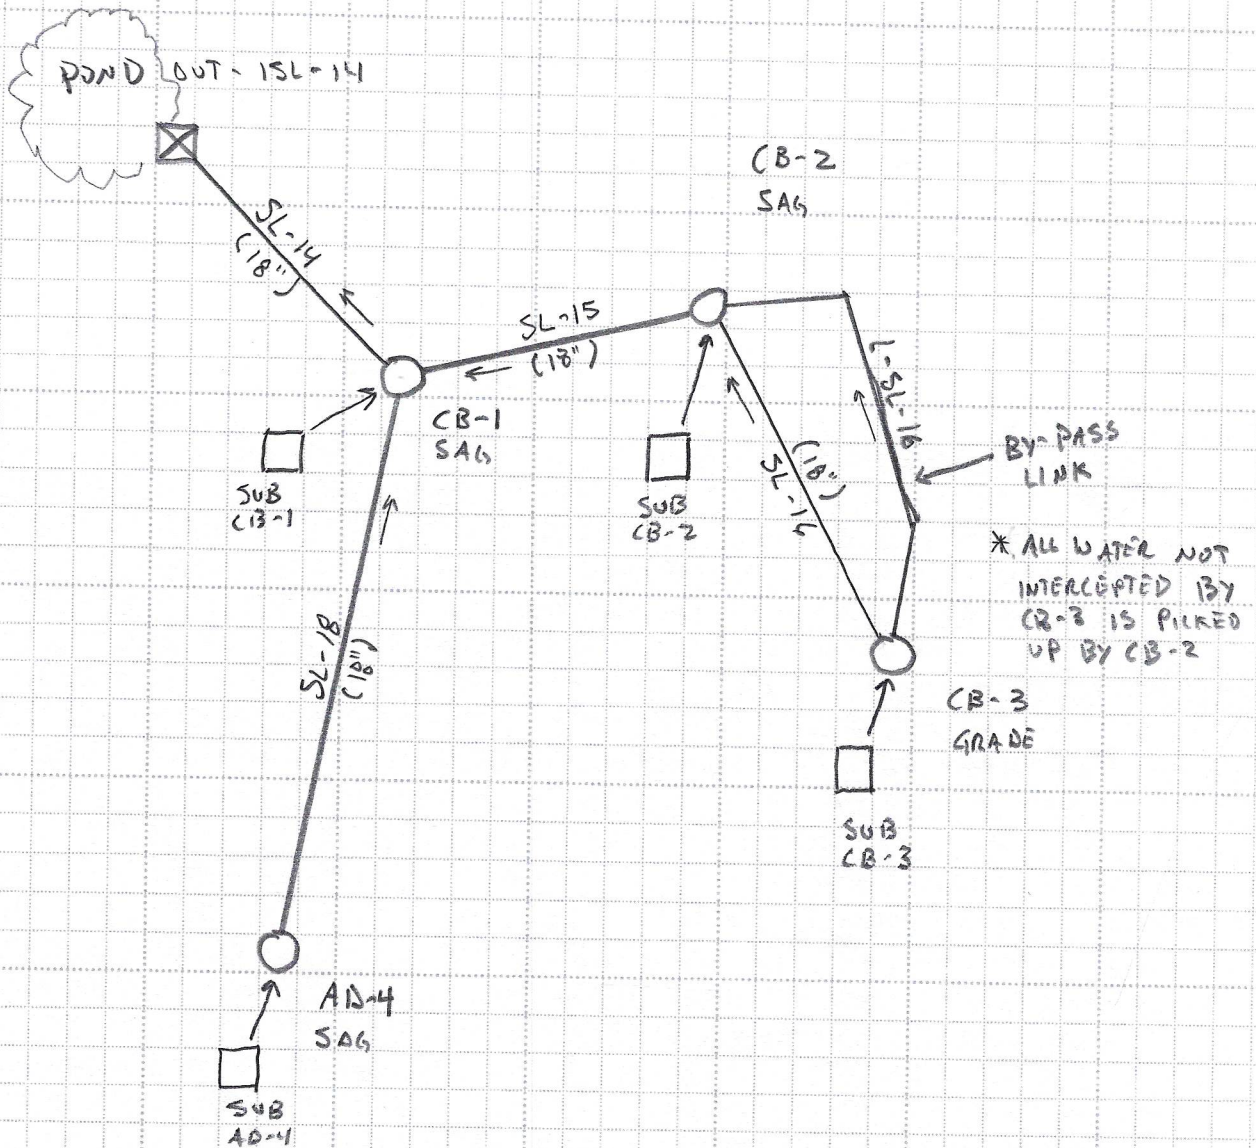 POND OUT - 1SL-14
CB-2
SAG
SL-14
(18")
SL-15
(18")
CB-1
SAG
SUB
CB-1
SUB
CB-2
(18")
SL-16
L-SL-16
BY-PASS
LINK
* ALL WATER NOT
INTERCEPTED BY
CB-3 IS PICKED
UP BY CB-2
CB-3
GRADE
SUB
CB-3
SL-18
AD-4
SAG
SUB
AD-4